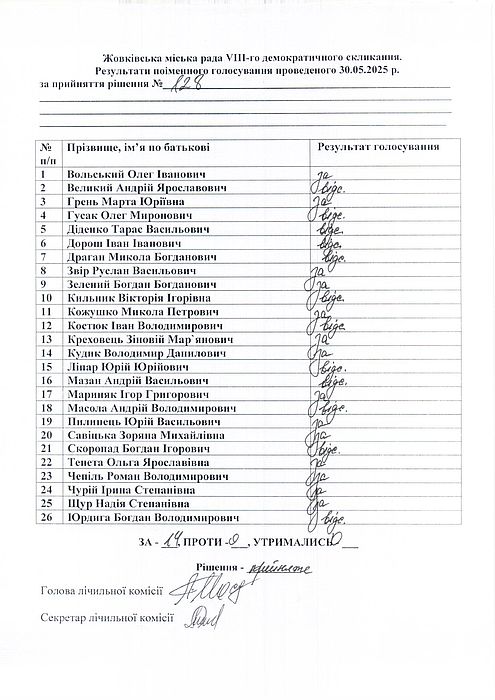 Жовківська міська рада VІІІ-го демократичного скликання.
Результати поіменного голосування проведеного 30.05.2025 р.
за прийняття рішення № 128
№ п/п Прізвище, ім’я по батькові Результат голосування
1 Вольський Олег Іванович за
2 Великий Андрій Ярославович відс.
3 Грень Марта Юріївна за
4 Гусак Олег Миронович відс.
5 Діденко Тарас Васильович відс.
6 Дорош Іван Іванович відс.
7 Драган Микола Богданович відс.
8 Звір Руслан Васильович за
9 Зелений Богдан Богданович за
10 Кильник Вікторія Ігорівна відс.
11 Кожушко Микола Петрович за
12 Костюк Іван Володимирович відс.
13 Креховець Зіновій Мар`янович за
14 Кудик Володимир Данилович за
15 Лівар Юрій Юрійович відс.
16 Мазан Андрій Васильович відс.
17 Мариняк Ігор Григорович за
18 Масола Андрій Володимирович відс.
19 Пилинець Юрій Васильович за
20 Савіцька Зоряна Михайлівна за
21 Скоропад Богдан Ігорович відс.
22 Тенета Ольга Ярославівна за
23 Чепіль Роман Володимирович за
24 Чурій Ірина Степанівна за
25 Щур Надія Степанівна за
26 Юрдига Богдан Володимирович відс.
ЗА - 14, ПРОТИ - 0, УТРИМАЛИСЬ 0
Рішення - прийнято
Голова лічильної комісії
Секретар лічильної комісії